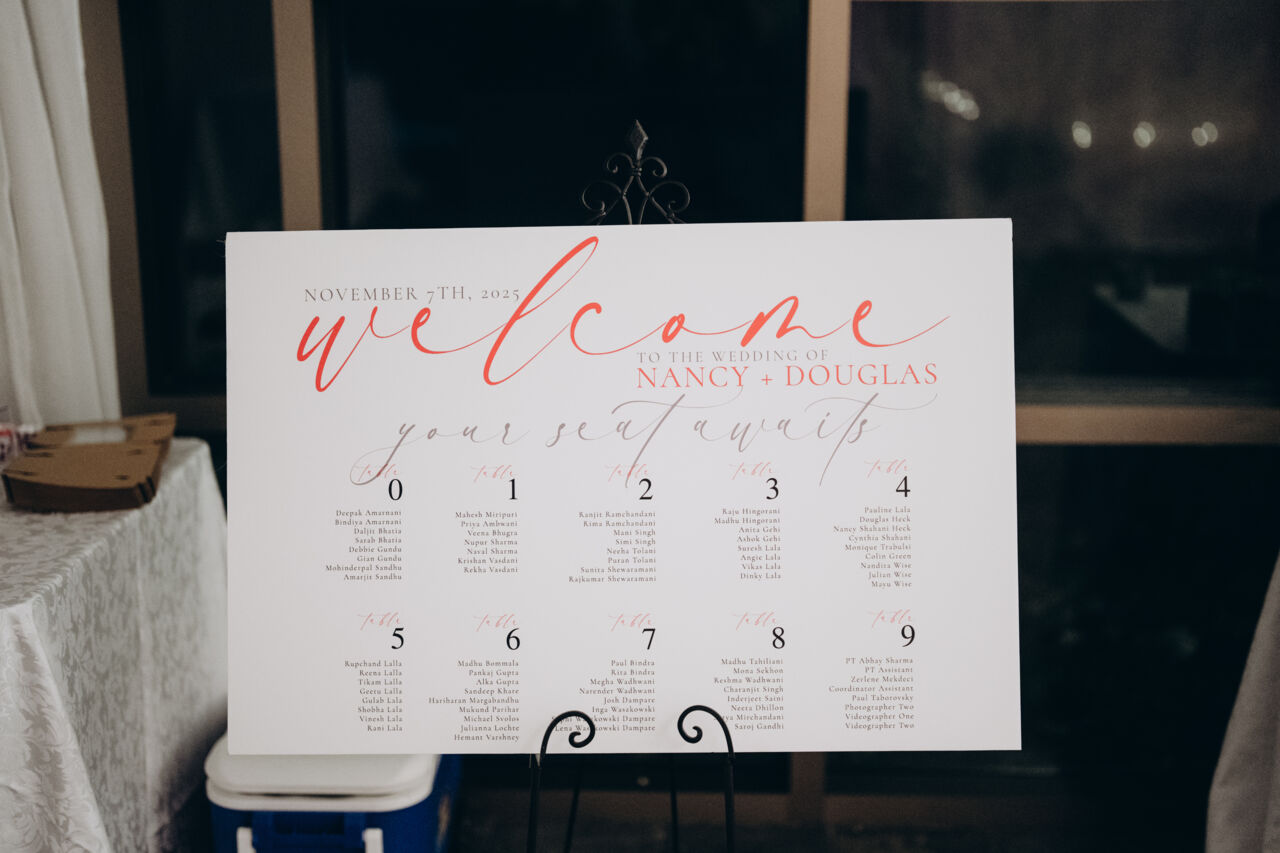 NOVEMBER 7TH, 2025
welcome
TO THE WEDDING OF
NANCY + DOUGLAS
your seat awaits
table
0
Deepak Amarnani
Bindiya Amarnani
Daljit Bhatia
Sarab Bhatia
Debbie Gundu
Gian Gundu
Mohinderpal Sandhu
Amarjit Sandhu
table
1
Mahesh Miripuri
Priya Ambwani
Veena Bhugra
Nupur Sharma
Naval Sharma
Krishan Vasdani
Rekha Vasdani
table
2
Ranjit Ramchandani
Rima Ramchandani
Mani Singh
Simi Singh
Neeha Tolani
Puran Tolani
Sunita Shewaramani
Rajkumar Shewaramani
table
3
Raju Hingorani
Madhu Hingorani
Anita Gehi
Ashok Gehi
Suresh Lala
Angie Lala
Vikas Lala
Dinky Lala
table
4
Pauline Lala
Douglas Heck
Nancy Shahani Heck
Cynthia Shahani
Monique Trabulsi
Colin Green
Nandita Wise
Julian Wise
Mayu Wise
table
5
Rupchand Lalla
Reena Lalla
Tikam Lalla
Geetu Lalla
Gulab Lala
Shobha Lala
Vinesh Lala
Rani Lala
table
6
Madhu Bommala
Pankaj Gupta
Alka Gupta
Sandeep Khare
Harsharan Margabandhu
Mukund Parihar
Michael Svolos
Julianna Lochte
Hemant Varshney
table
7
Paul Bindra
Rita Bindra
Megha Wadhwani
Narender Wadhwani
Josh Dampare
Inga Waszkowski
Waszkowski Dampare
Lena Waszkowski Dampare
table
8
Madhu Tahiliani
Mona Sekhon
Reshma Wadhwani
Charanjit Singh
Inderjeet Saini
Neeta Dhillon
Mirchandani
Saroj Gandhi
table
9
PT Abhay Sharma
PT Assistant
Zerlene Mekdeci
Coordinator Assistant
Paul Taborovsky
Photographer Two
Videographer One
Videographer Two